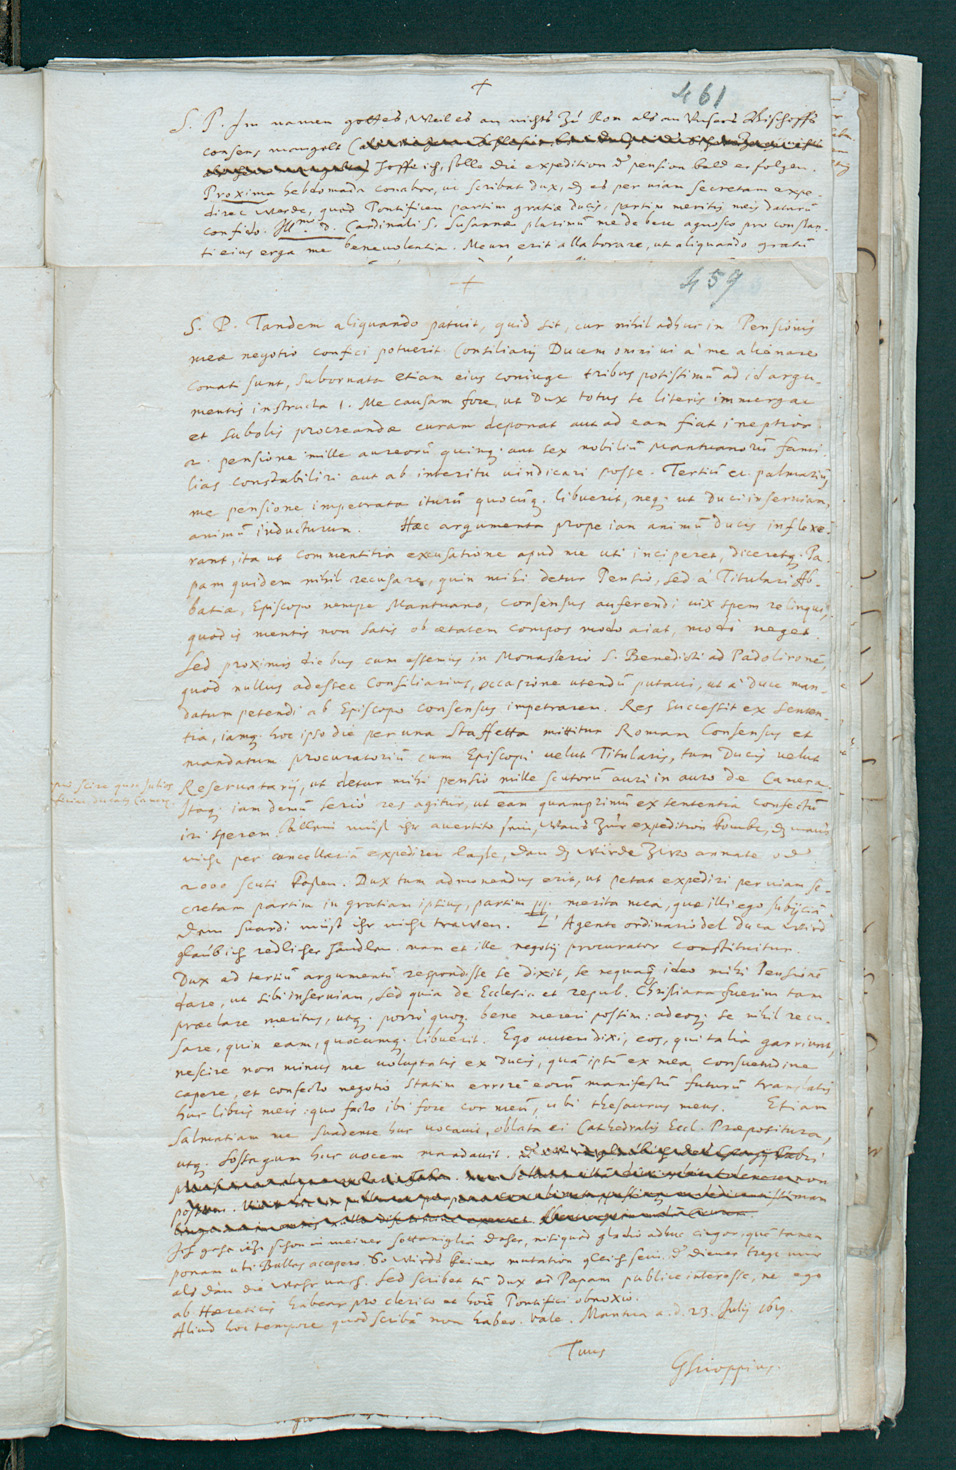 +
461
S. P. Im namen gottes, Weil es an nichts zu Rom als an Unsers Bischoffs
consens mangelt
hoffe ich, solle die expedition d' pension bald erfolgen.
Proxima hebdomada conabor, ut scribat Dux, dz es per viam secretam expe-
dirt werde, quod Pontificem partim gratiæ ducis, partim meritis meis daturū
confido. Illmo D. Cardinali S. Susannæ plurimū me debere agnosco pro constan-
ti eius erga me benevolentia. Meum erit allaborare, ut aliquando gratū
+
459
S. P. Tandem aliquando patuit, quid sit, cur nihil adhuc in Pensionis
meæ negotio confici potuerit. Consiliarij Ducem omni vi à me alienare
conati sunt, subornata etiam eius coniuge tribus potissimū ad id argu-
mentis instructa 1. Me causam fore, ut Dux totus se literis immergat
et subolis procreandæ curam deponat aut ad eam fiat ineptior.
2. pensione mille aureorū quinq. aut sex nobiliū Mantuanorū fami-
lias constabiliri aut ab interitu vindicari posse. Tertiū et palmariū,
me pensione impetrata iturū quocūq. libuerit, neq. ut Duci inserviam,
animū inducturum. Hæc argumenta prope iam animū Ducis inflexe-
rant, ita ut commentitia excusatione apud me uti inciperet, diceretq. Pa-
pam quidem nihil recusare, quin mihi detur Pensio, sed à Titulari Ab-
batiæ, Episcopo nempe Mantuano, consensus auferendi vix spem relinqui,
quod is mentis non satis ob ætatem compos modo aiat, modo neget.
Sed proximis diebus cum essemus in Monasterio S. Benedicti ad Padolironē,
quod nullus adesset Consiliarius, occasione utendū putavi, ut à Duce man-
datum petendi ab Episcopo consensus impetrarem. Res successit ex senten-
tia, iamq. hoc ipso die per una Staffetta mittitur Romam Consensus et
mandatum procuratoriū cum Episcopi velut Titularis, tum Ducis velut
Reservatarij, ut detur mihi pensio mille scutorū auri in auro de Camera.
Itaq. iam demū serio res agitur, ut eam quamprimū ex sententia confectū
iri sperem. Allein müst ihr avertito sein, wans zur expedition kombt, dz mans
nicht per cancellariā expediren lasse, dan dz würde zwo annate od'
2000 scuti kosten. Dux tum admonendus erit, ut petat expediri per viam se-
cretam partim in gratiam ipsius, partim pp. merita mea, quæ illi ego subijciā.
Dem Suardi müst ihr nicht trawen. L'Agente ordinario del Duca wird
glaub ich redlicher handlen. nam et ille negotij procurator constituitur.
Dux ad tertiū argumentū respondisse se dixit, se nequaq. ideo mihi Pensionē
dare, ut sibi inserviam, sed quia de Ecclesia et repub. Christiana fuerim tam
præclare meritus, utq. porrò quoq. bene mereri possim: adeoq. se nihil recu-
sare, quin eam, quocumq. libuerit. Ego autem dixi, eos, qui talia garriunt,
nescire non minus me voluptatis ex Ducis, quā ipsū ex mea consuetudine
capere, et confecto negotio statim errorē eorū manifestū futurū translatis
huc libris meis: quo facto ibi fore cor meū, ubi thesaurus meus. Etiam
Salmatiam me suadente huc vocavit, oblata ei Cathedralis Eccl. Præpositura,
utq. Sostagum huc vocem mandavit.
Ich gehe itzt schon in meiner sottaniglia daher, nisi quod gladio adhuc cingor, quē tamen
ponam ubi Bullas accepero. So würds keiner mutation gleich sein, d' diener tregt mir
als dan die Wehr nach. Sed scribet tū Dux ad Papam publice interesse, ne ego
ab Hæreticis habear pro clerico et hoīe Pontifici obnoxio.
Aliud hoc tempore quod scribā non habeo. Vale. Mantua a. d. 23. Julij 1619.
Tuus
GScioppius.